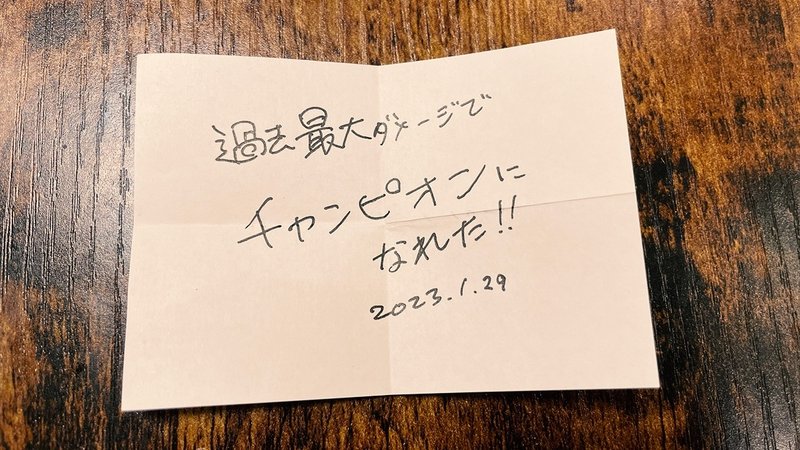 過去最大ダメージで
チャンピオンに
なれた!!
2023.1.29